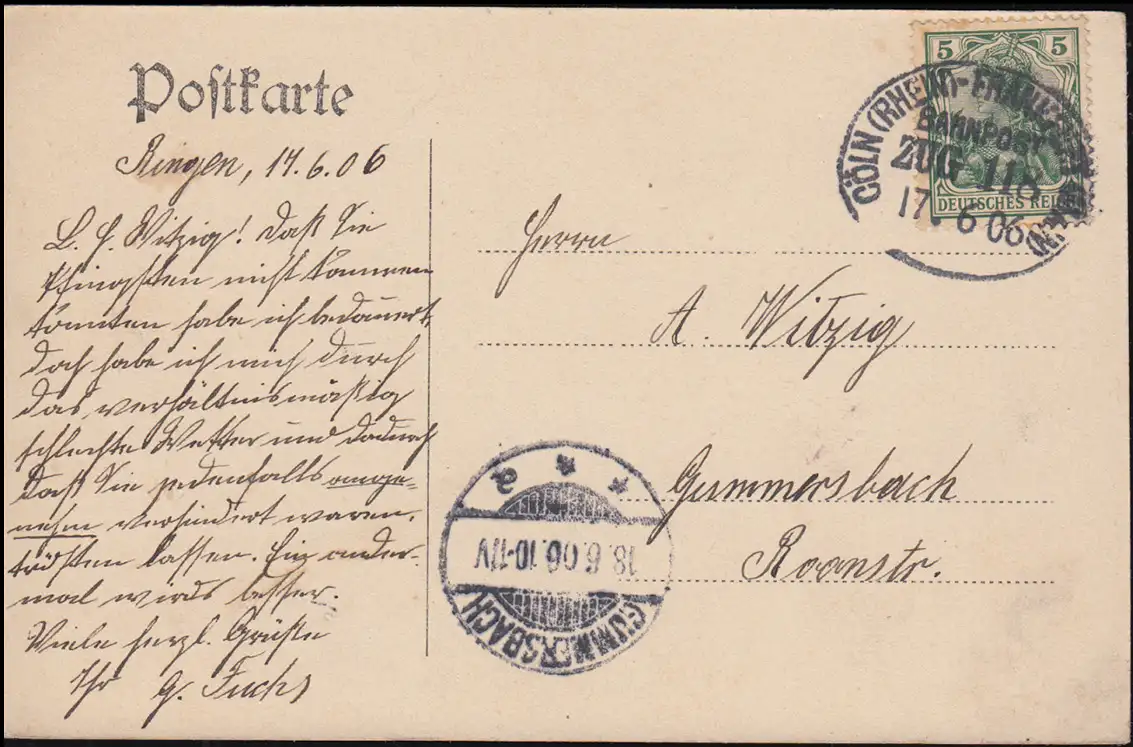 Postkarte
Bingen, 17.6.06
L. H. Witzig! Daß Sie
Pfingsten nicht kommen
konnten habe ich bedauert,
doch habe ich mich durch
das verhältnismäßig
schlechte Wetter und dadurch
daß Sie jedenfalls ange-
nehm verhindert waren,
trösten lassen. Ein ander-
mal wirds besser.
Viele herzl. Grüße
Ihr G. Fuchs
5 5
DEUTSCHES REICH
CÖLN (RHEIN)-
BAHNPOST
ZUG 118
17. 6 06
Herrn
A. Witzig
Gummersbach
Roonstr.
18.6.06.10-11V
GUMMERSBACH